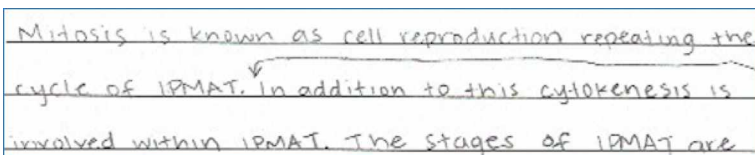 Mitosis is known as cell reproduction repeating the
cycle of IPMAT. In addition to this cytokenesis is
involved within IPMAT. The stages of IPMAT are